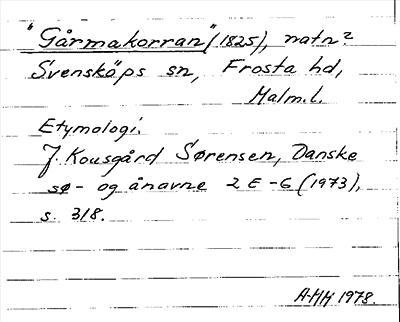 "Gårmakorran" (1825), natn?
Svensköps sn, Frosta hd,
Malm.l.
Etymologi.
J. Kousgård Sørensen, Danske
sø- og ånavne 2 E-G (1973),
s. 318.
AMH 1978.